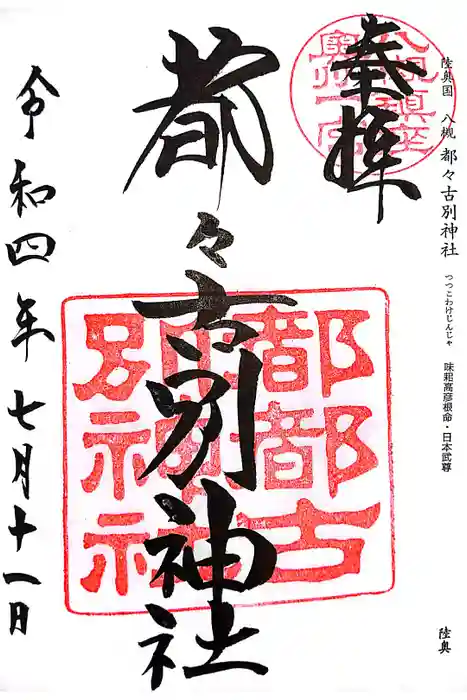 陸奥国　八槻　都々古別神社　つつこわけじんじゃ　味耜高彦根命・日本武尊
陸奥
奉拝
八槻鎮座
奥州一宮
都々古別神社
都都古
別神社
令和四年七月十一日